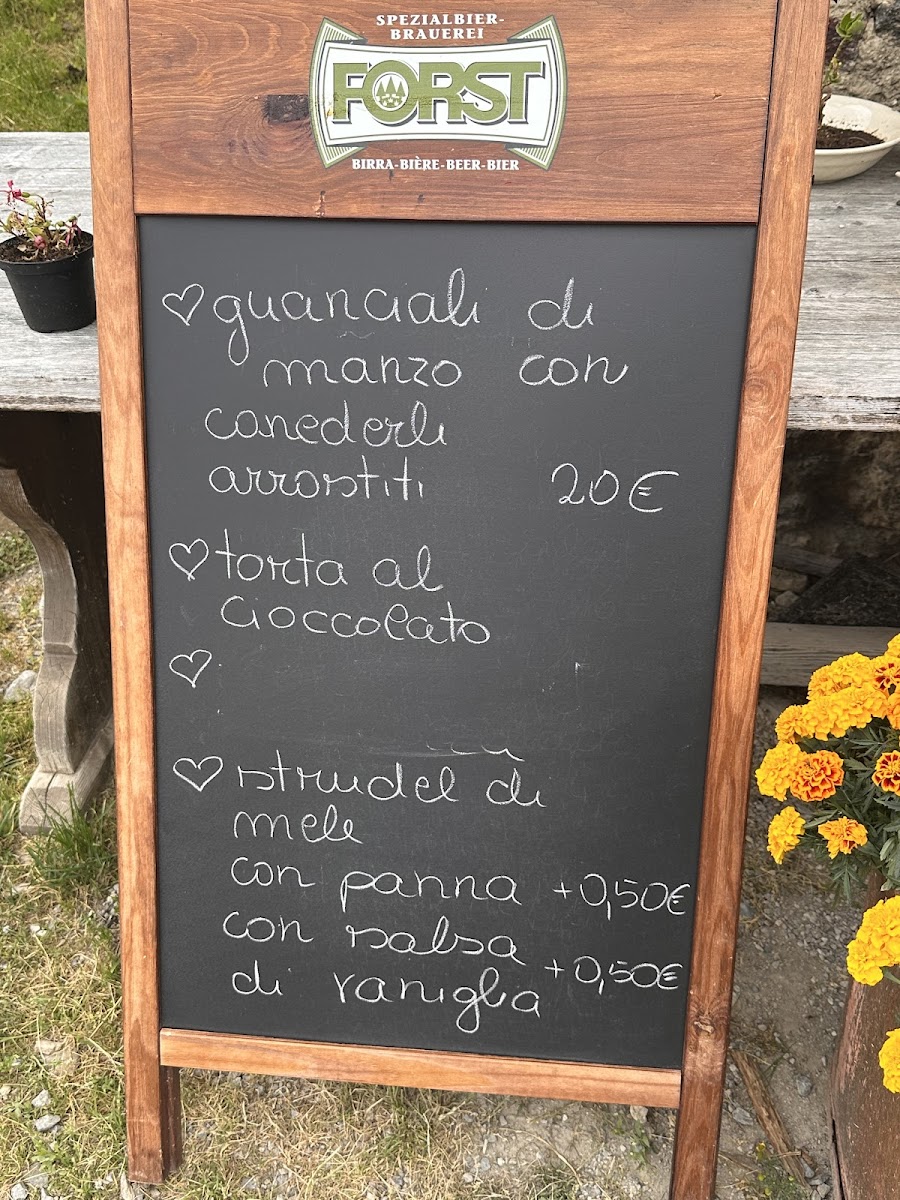 SPEZIALBIER-
BRAUEREI
FORST
BIRRA-BIÈRE-BEER-BIER
♡ guanciali di
manzo con
canederli
arrostiti 20€
♡ torta al
cioccolato
♡
♡ strudel di
mele
con panna +0,50€
con salsa
di vaniglia +0,50€